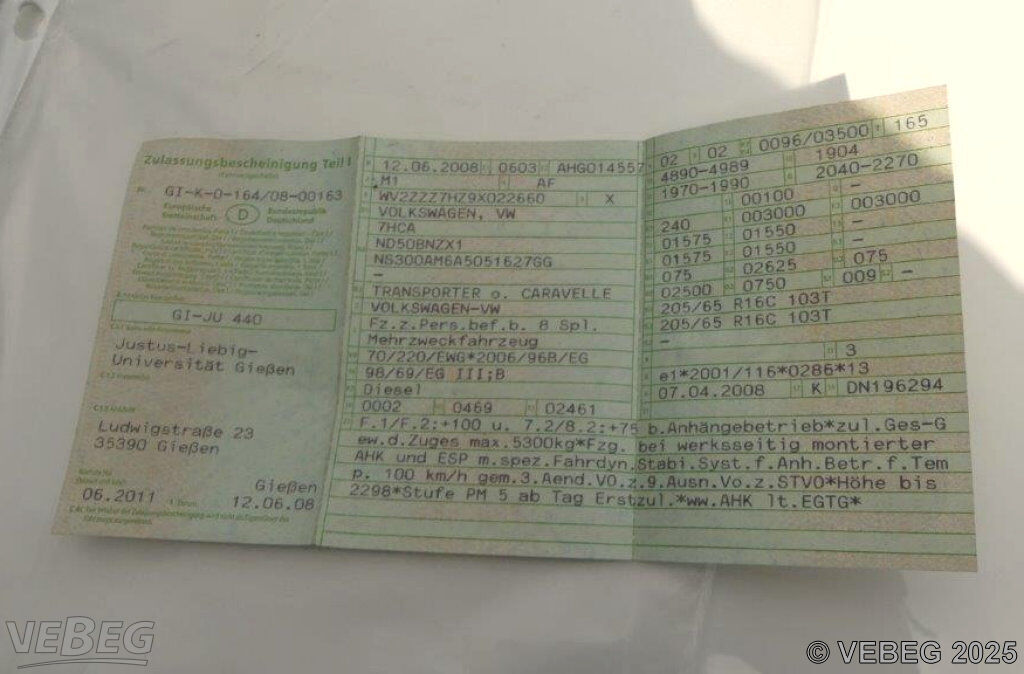 Zulassungsbescheinigung Teil I
GI-K-0-164/08-00163
Europäische Gemeinschaft
D
Bundesrepublik Deutschland
GI-JU 440
Justus-Liebig-
Universität Gießen
Ludwigstraße 23
35390 Gießen
Gießen
06.2011
12.06.08
12.06.2008 0603 AHG014557
M1 AF
WV2ZZZ7HZ9X022660 X
VOLKSWAGEN, VW
7HCA
ND50BNZX1
NS300AM6A5051627GG
–
TRANSPORTER o. CARAVELLE
VOLKSWAGEN-VW
Fz.z.Pers.bef.b. 8 Spl.
Mehrzweckfahrzeug
70/220/EWG*2006/96B/EG
98/69/EG III;B
Diesel
0002 0469 02461
02 02 0096/03500 165
4890-4989 1904
1970-1990 2040-2270
00100 –
240 003000 003000
01575 01550 –
01575 01550 –
075 02625 075
02500 0750 009 –
205/65 R16C 103T
205/65 R16C 103T
–
3
e1*2001/116*0286*13
07.04.2008 K DN196294
F.1/F.2:+100 u. 7.2/8.2:+75 b.Anhängebetrieb*zul.Ges-G
ew.d.Zuges max.5300kg*Fzg. bei werksseitig montierter
AHK und ESP m.spez.Fahrdyn.Stabi.Syst.f.Anh.Betr.f.Tem
p. 100 km/h gem.3.Aend.VO.z.9.Ausn.Vo.z.STVO*Höhe bis
2298*Stufe PM 5 ab Tag Erstzul.*ww.AHK lt.EGTG*
VEBEG
© VEBEG 2025